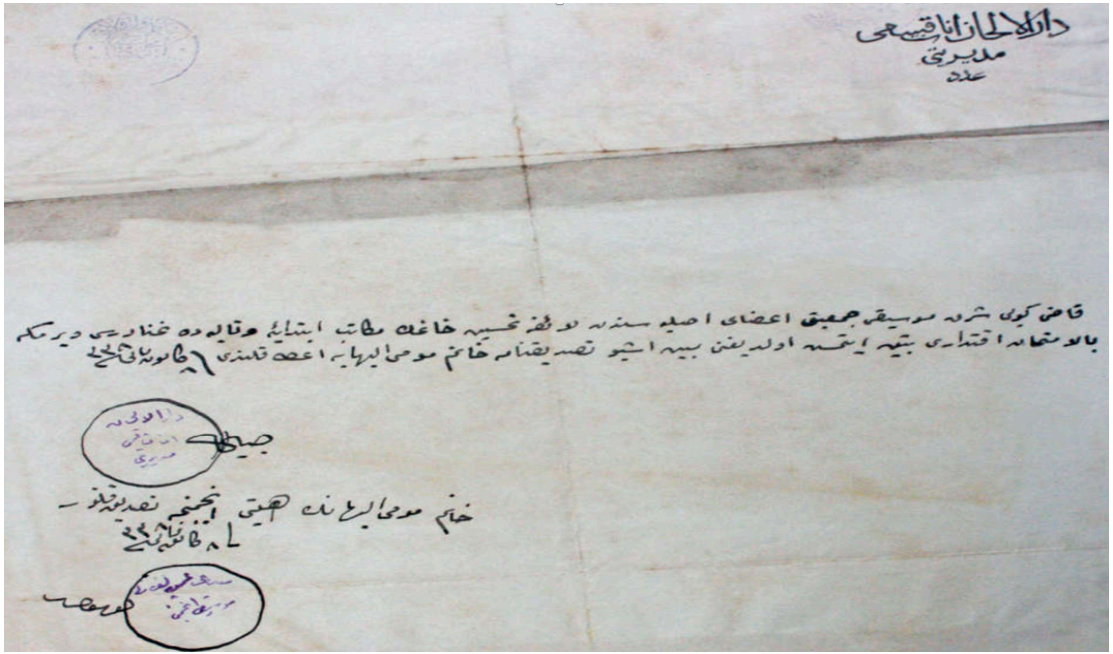 دارالالحان اناث قسمی
مدیریتی
عدد
قاضی کویی شرق موسیقی جمعیتی اعضای اصلیه سندن لائقه تحسین خانمك مكاتب ابتدائیه وتالیه ده غنا درسی ویرمكه
بالامتحان اقتداری تبین ایتمش اولدیغنی مبین اشبو تصدیقنامه خانم مومی الیهایه اعطا قلندی ٨ كانون ثانی
دارالالحان
اناث قسمی
مدیری
خانم مومی الیهانك اهلیتی انجمنجه تصدیق قلنور
٨ كانون ثانی
موسیقی انجمنی